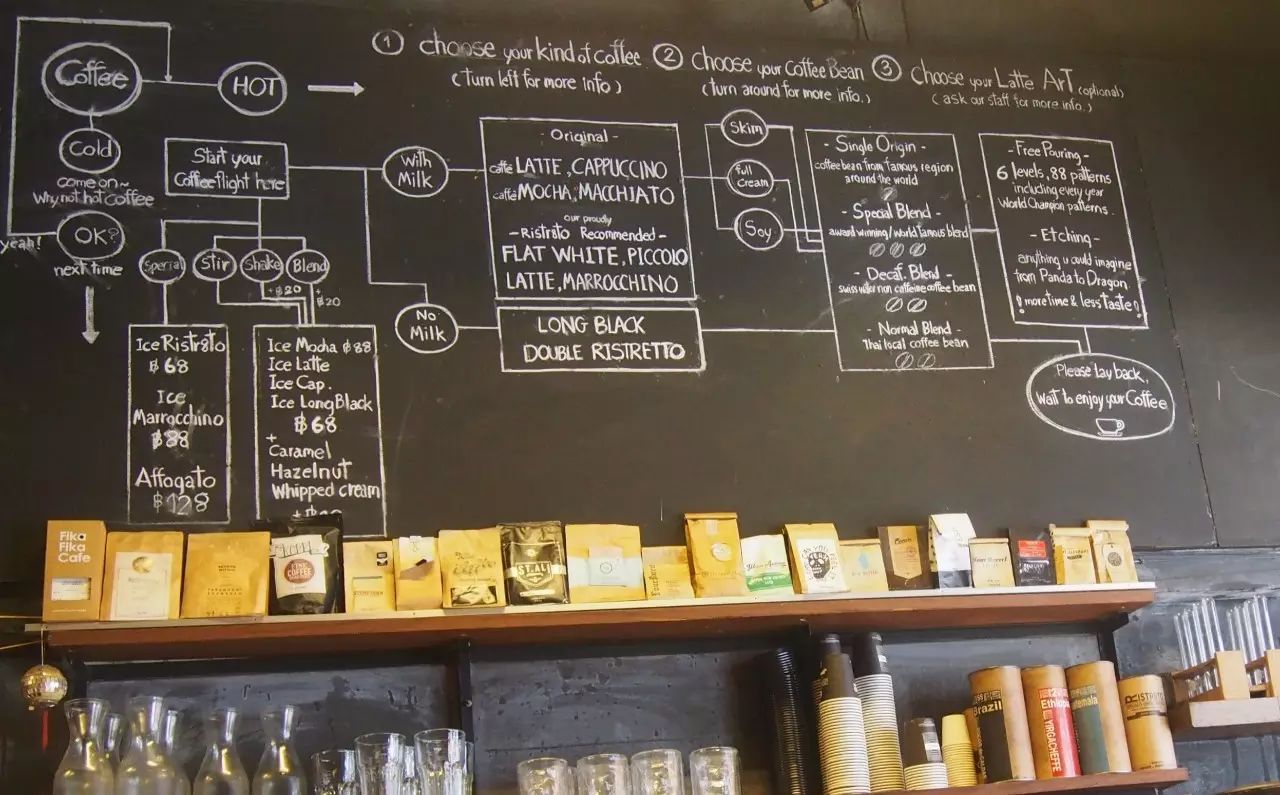 Coffee
HOT
Cold
come on~
Why not hot coffee
OK?
yeah!
next time
Start your
Coffee flight here
Special
Stir
Shake
Blend
+฿20
+฿20
Ice Ristr8to
฿68
Ice
Marrocchino
฿88
Affogato
฿128
Ice Mocha ฿88
Ice Latte
Ice Cap.
Ice Long Black
฿68
+
Caramel
Hazelnut
Whipped cream
1 choose your kind of coffee
(turn left for more info)
With
Milk
No
Milk
- Original -
caffé LATTE, CAPPUCCINO
caffé MOCHA, MACCHIATO
our proudly
- Ristr8to Recommended -
FLAT WHITE, PICCOLO
LATTE, MARROCCHINO
LONG BLACK
DOUBLE RISTRETTO
2 choose your Coffee Bean
(turn around for more info.)
Skim
full
Cream
Soy
- Single Origin -
coffee bean from famous region
around the world
- Special Blend -
award winning/world famous blend
- Decaf. Blend -
swiss water non caffeine coffee bean
- Normal Blend -
Thai local coffee bean
3 choose your Latte ArT (optional)
(ask our staff for more info.)
- Free Pouring -
6 levels, 88 patterns
including every year
World Champion patterns.
- Etching -
anything u could imagine
from Panda to Dragon
! more time & less taste !
Please lay back,
wait to enjoy your Coffee
Fika
Fika
Cafe
FIVE
COFFEE
ST. ALi
Brazil
Ethiopia
YIRGACHEFFE
RISTR8TO